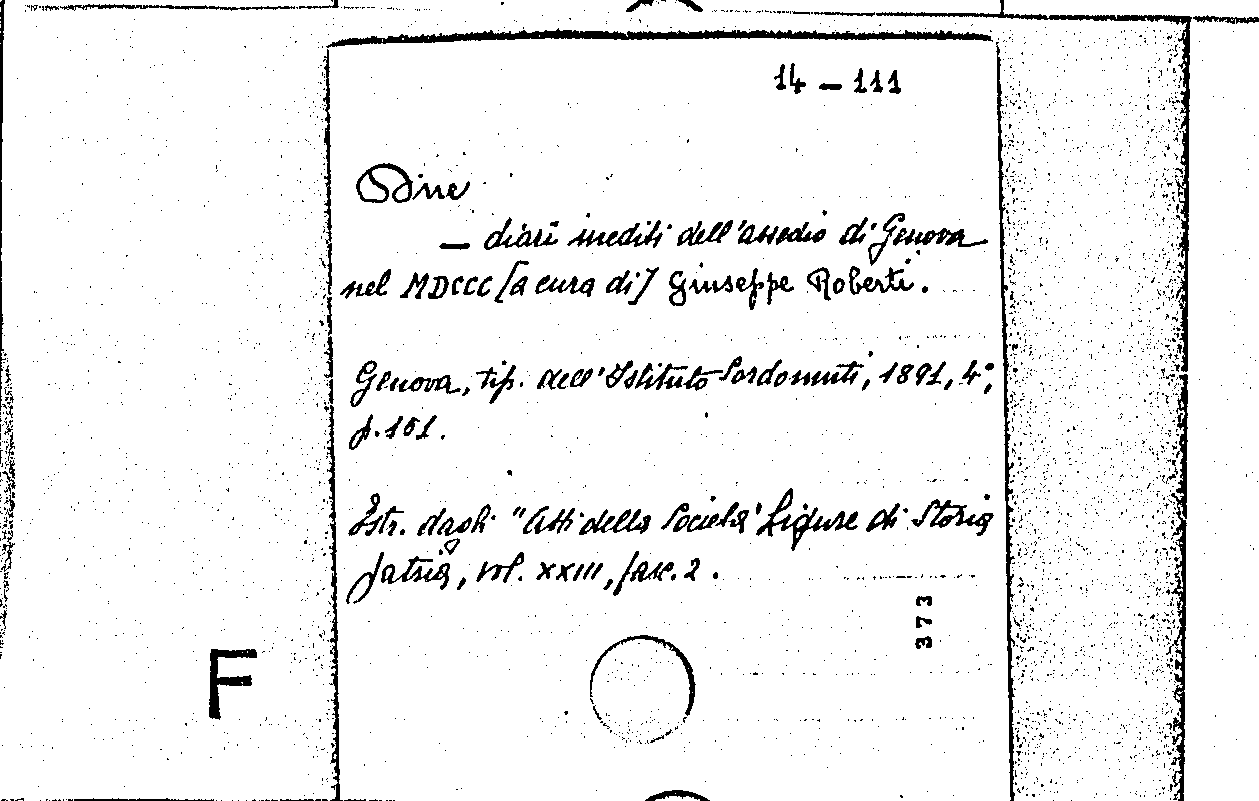 14 - 111
Due
- diari inediti dell'assedio di Genova
nel MDCCC [a cura di] Giuseppe Roberti.
Genova, tip. dell'Istituto Sordomuti, 1891, 4°,
p. 151.
Estr. dagli "Atti della Società Ligure di Storia
Patria, vol. XXIII, fasc. 2.
373
F